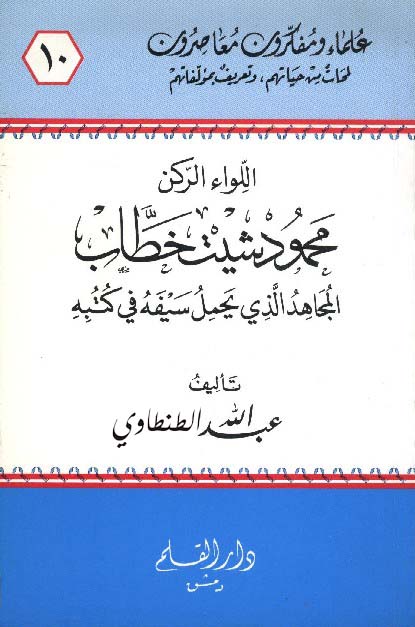 علماء ومفكرون معاصرون
لمحات من حياتهم، وتعريف بمؤلفاتهم
١٠
اللواء الركن
محمود شيت خطَّاب
المجاهدُ الَّذي يَحمِلُ سَيفَهُ في كُتُبِهِ
تأليفُ
عبد الله الطنطاوي
دار القلم
دمشق